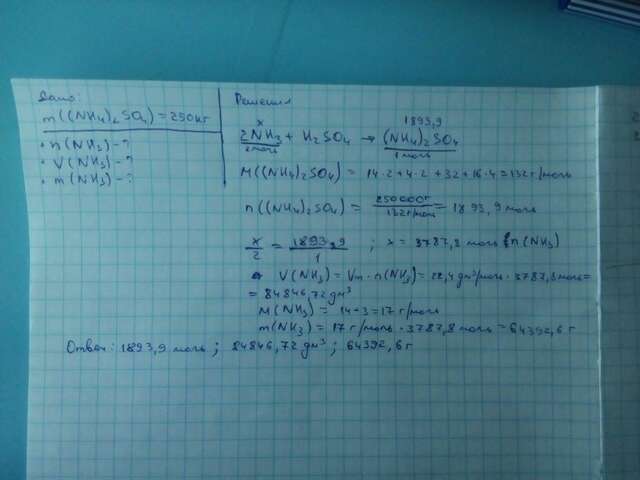 Дано:
m((NH4)2SO4) = 250 кг
• n(NH3) - ?
• V(NH3) - ?
• m(NH3) - ?
Решение
x 1893,9
2NH3 + H2SO4 → (NH4)2SO4
2 моль 1 моль
M((NH4)2SO4) = 14·2+4·2+32+16·4=132 г/моль
n((NH4)2SO4) = 250000 г / 132 г/моль = 1893,9 моль
x/2 = 1893,9/1 ; x = 3787,8 моль n(NH3)
V(NH3) = Vm · n(NH3) = 22,4 дм³/моль · 3787,8 моль=
= 84846,72 дм³
M(NH3) = 14+3=17 г/моль
m(NH3) = 17 г/моль · 3787,8 моль = 64392,6 г
Ответ: 1893,9 моль ; 84846,72 дм³ ; 64392,6 г